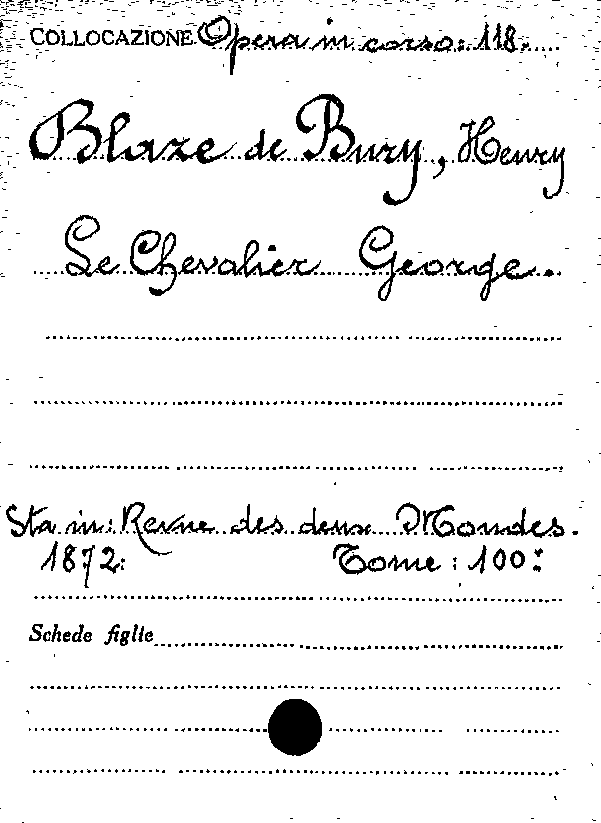 COLLOCAZIONE Opera in corso: 118.
Blaze de Bury, Henry
Le Chevalier George.
Sta in: Revue des deux Mondes.
1872: Tome: 100:
Schede figlie